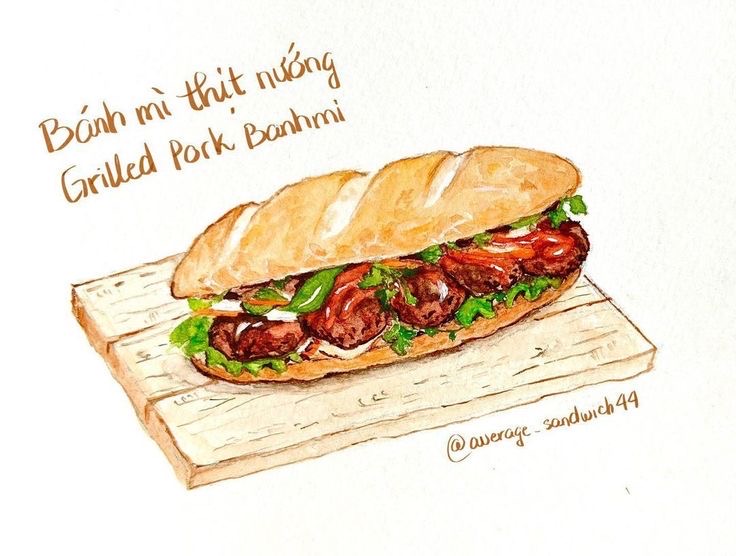 Bánh mì thịt nướng
Grilled Pork Banhmi
@average_sandwich44